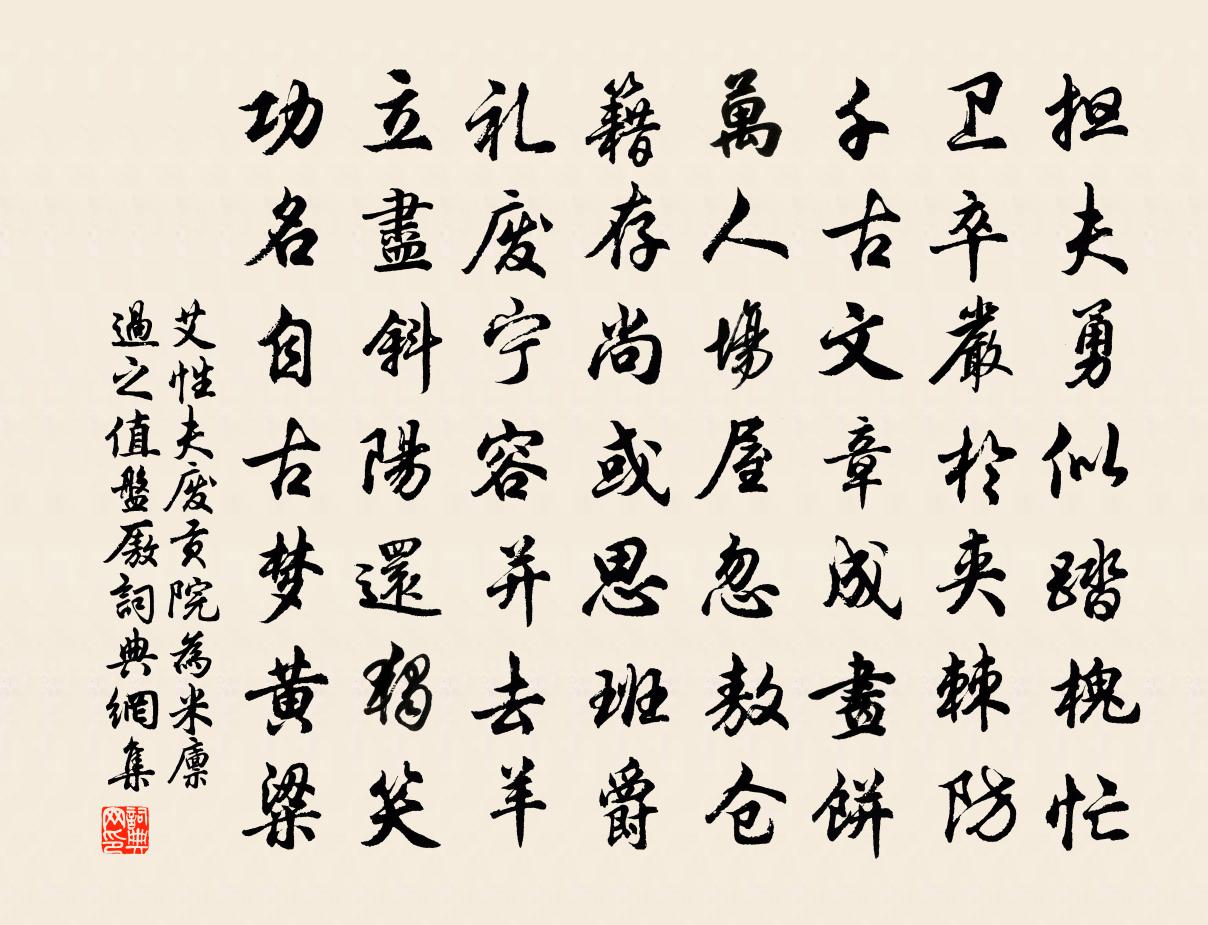 担夫勇似踏槐忙
卫卒嚴於夹棘防
千古文章成畫餅
萬人場屋忽敖仓
籍存尚或思班爵
礼废宁容并去羊
立盡斜陽還獨笑
功名自古梦黄粱
艾性夫废贡院為米廪
過之值盤厫詞典網集
詞典
网印